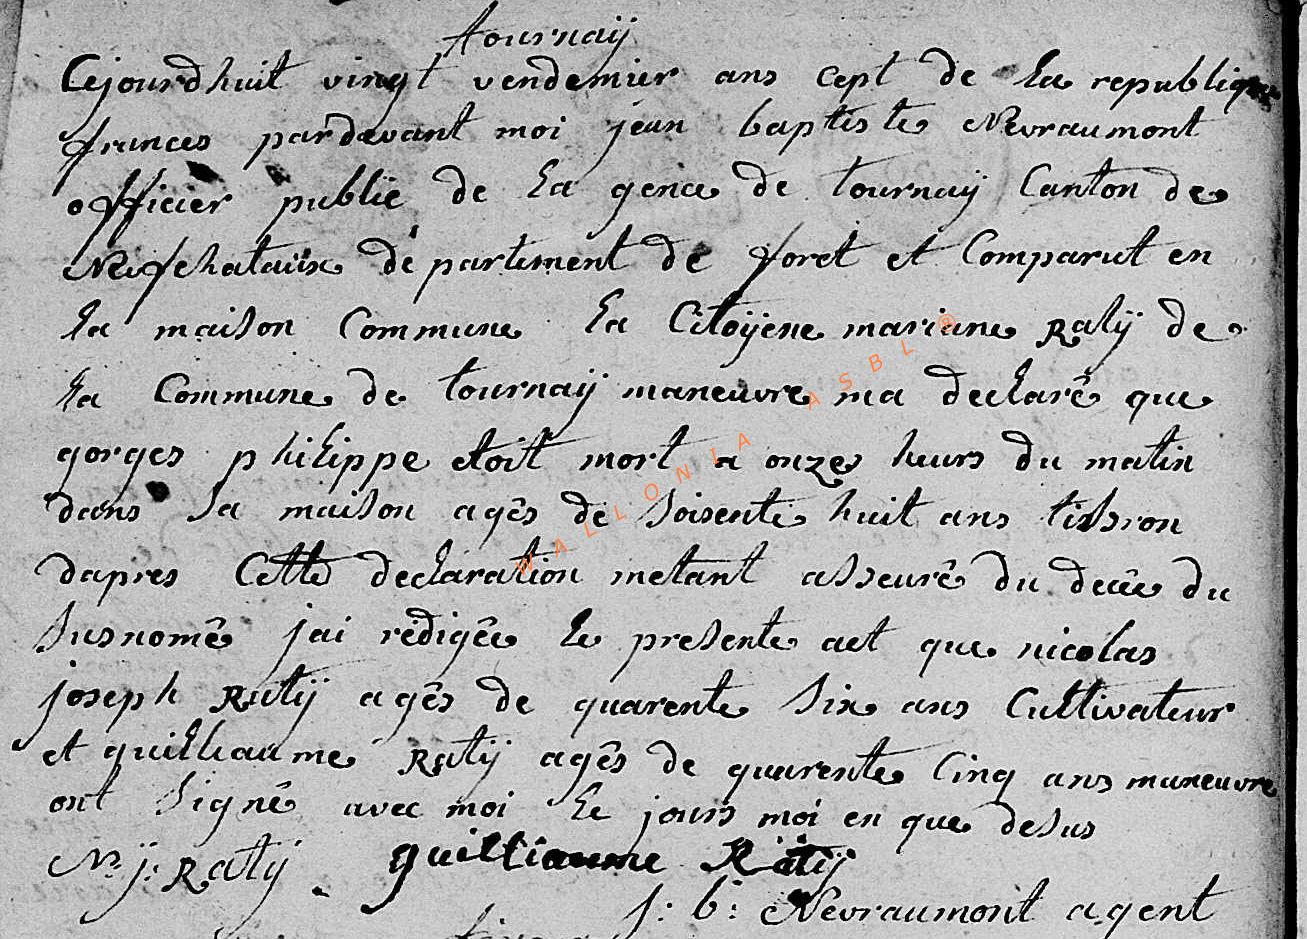 tournaÿ
Cejourdhuit vingt vendemier ans cept de la republique
frances pardevant moi jean baptiste Nevraumont
officier publie de la gence de tournaÿ Canton de
Neifchataüx departement de foret et Comparut en
la maison Commune la Citoÿene mariane Ratÿ de
la Commune de tournaÿ maneuvre ma declarê que
gorges philippe etoit mort a onze heurs du matin
dans sa maison agês de soisente huit ans tissron
dapres Cette declaration metant asseurê du decêe du
susnomê jai redigêe le presente act que nicolas
joseph Ratÿ agês de quarente six ans Cultivateur
et guilliaume Ratÿ agês de quarente Cinq ans maneuvre
ont signê avec moi le jours moi en que desus
N: j: Ratÿ guilliaume Ratÿ
j: b: Nevraumont agent
WALLONIA ASBL ®